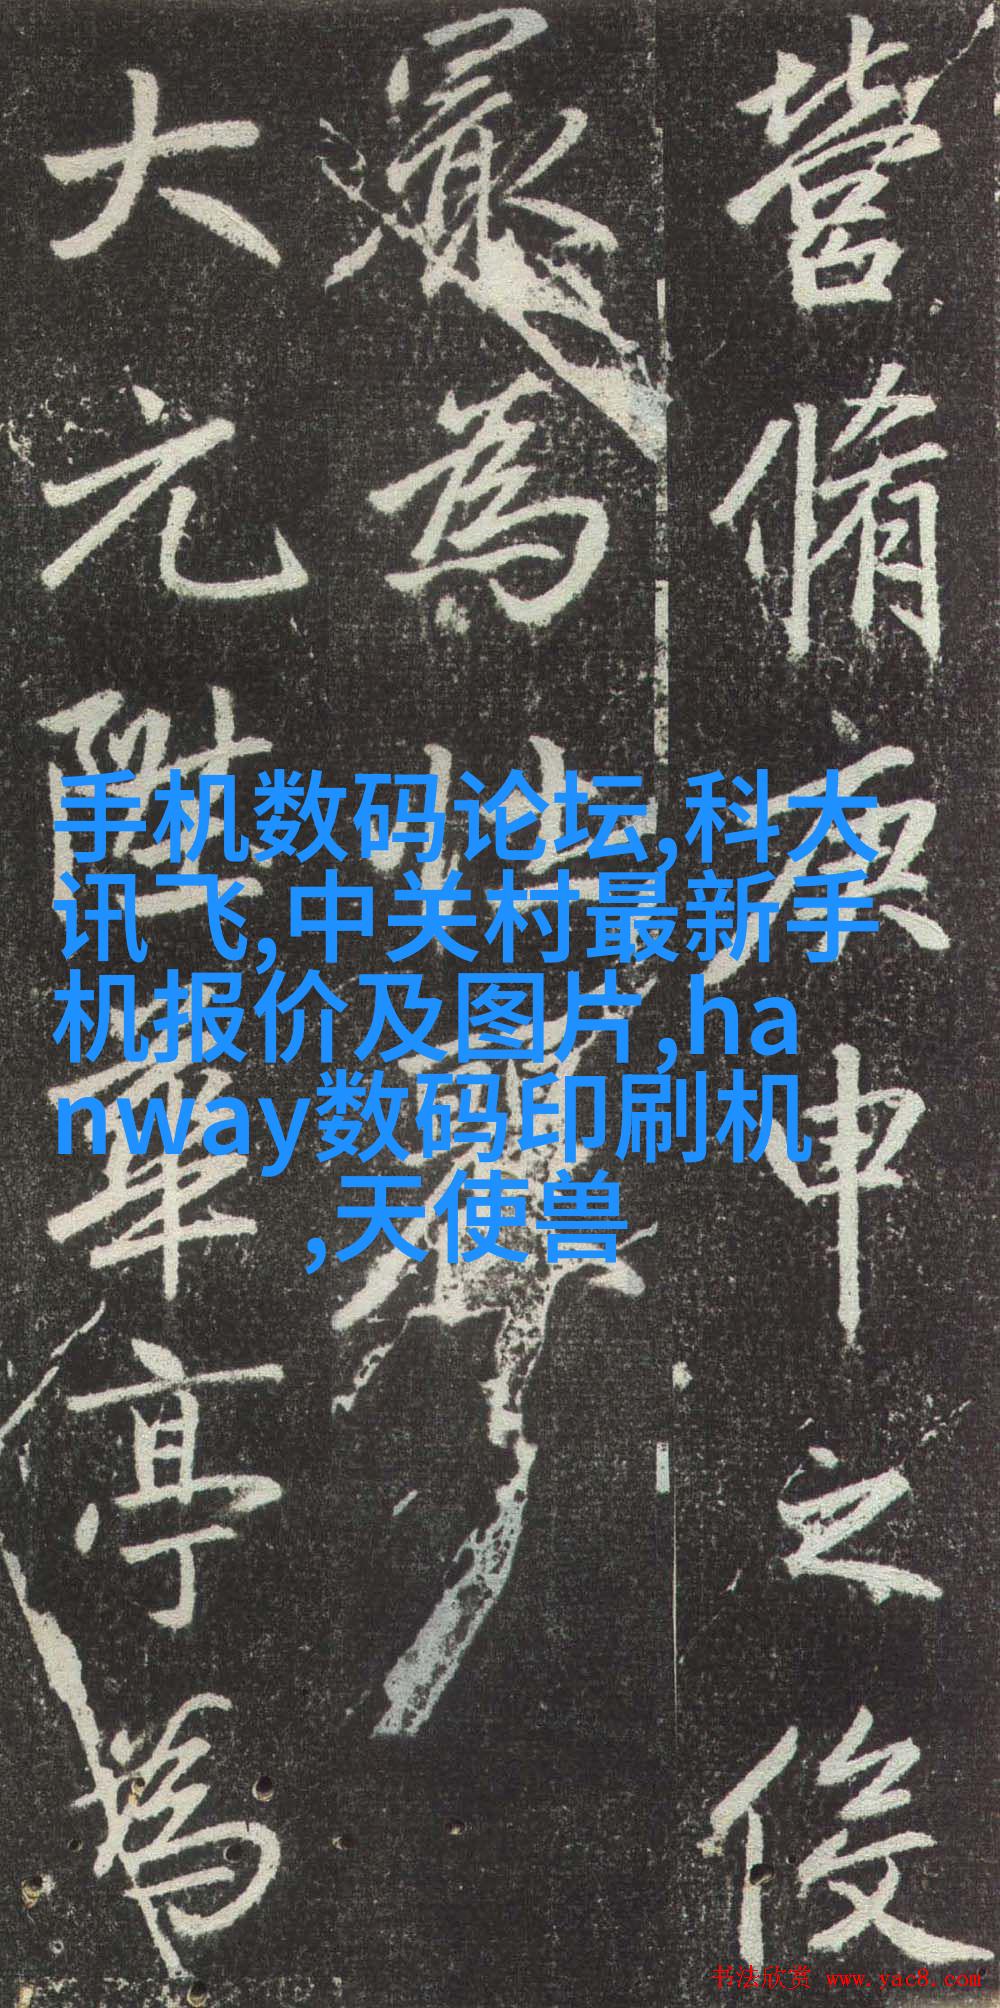 營脩庚申之後
最為壯麗
大元陞華亭為
手机数码论坛,科大
讯飞,中关村最新手
机报价及图片,ha
nway数码印刷机
,天使兽
书法欣赏 www.yac8.com